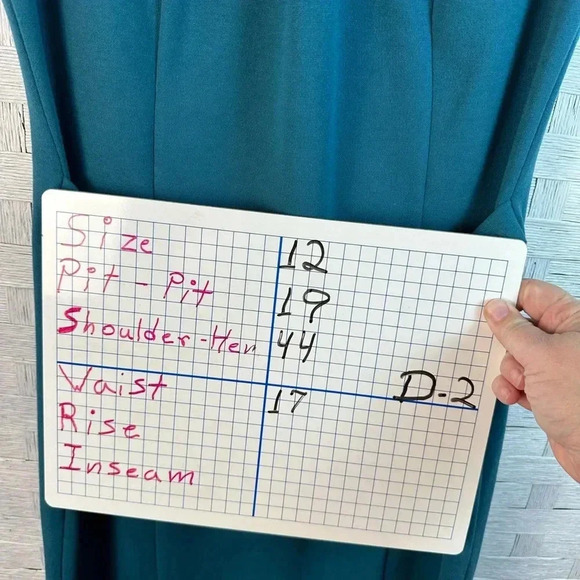 Size 12
Pit - Pit 19
Shoulder-Hem 44
Waist 17 D-2
Rise
Inseam